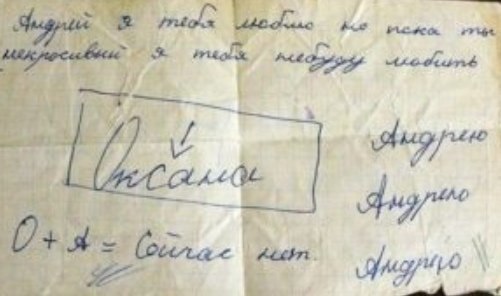 Андрей я тебя люблю но пока ты
некросивый я тебя небуду любить
Оксана
Андрею
Андрею
О + А = Сойчас нет.
Андрею